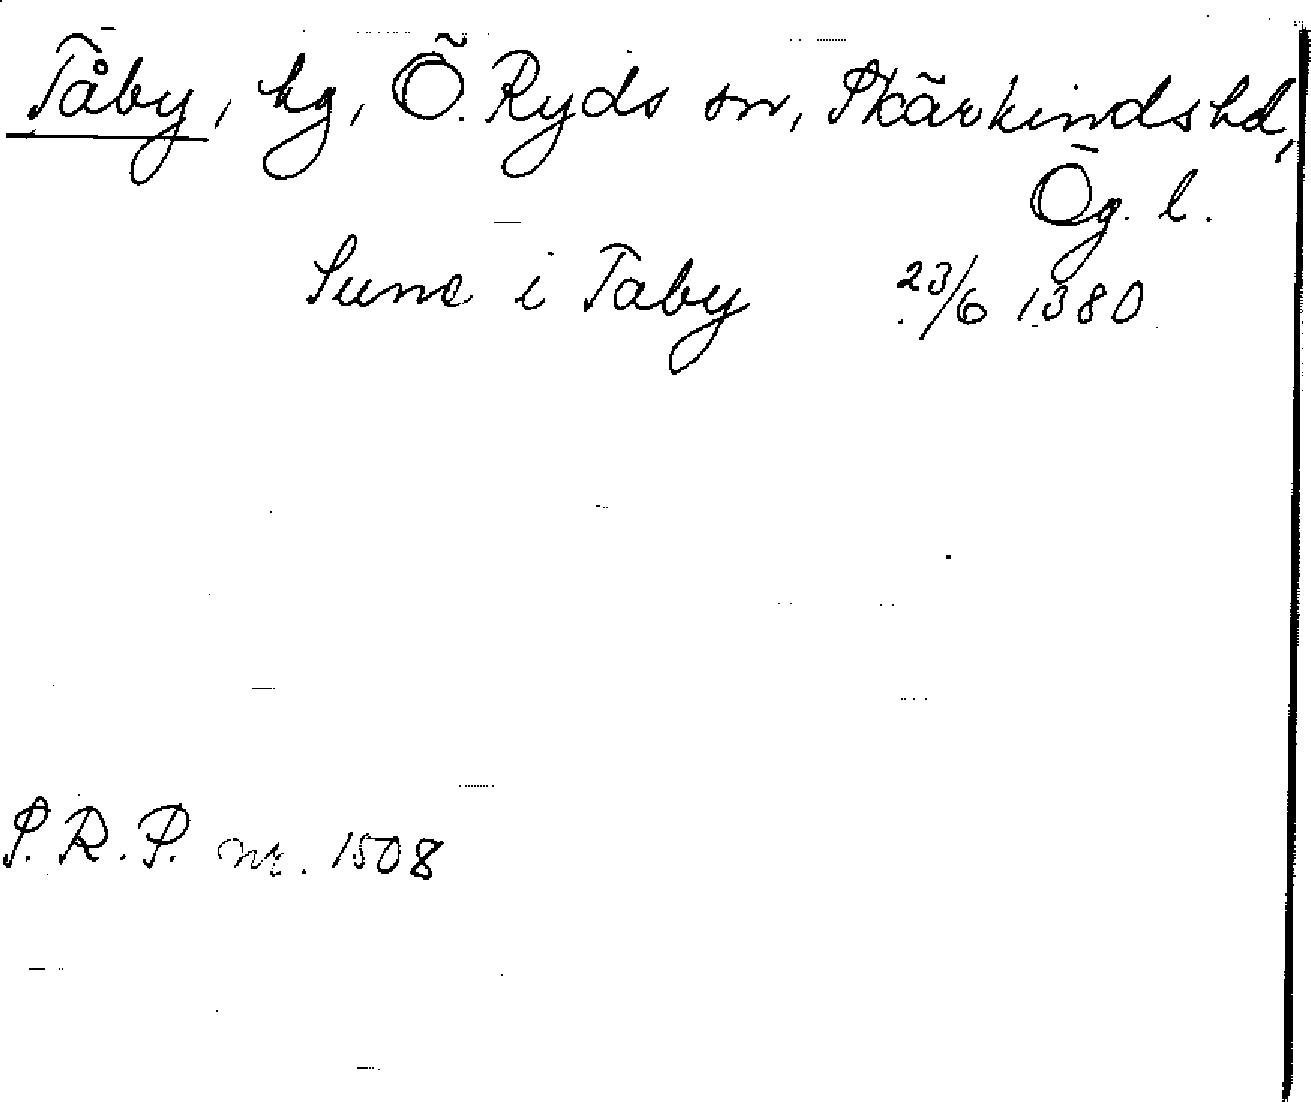 Tåby, hg, Ö. Ryds sn, Skärkindshd,
Ög. l.
Sune i Taby 23/6 1380
S.R.P. nr. 1508